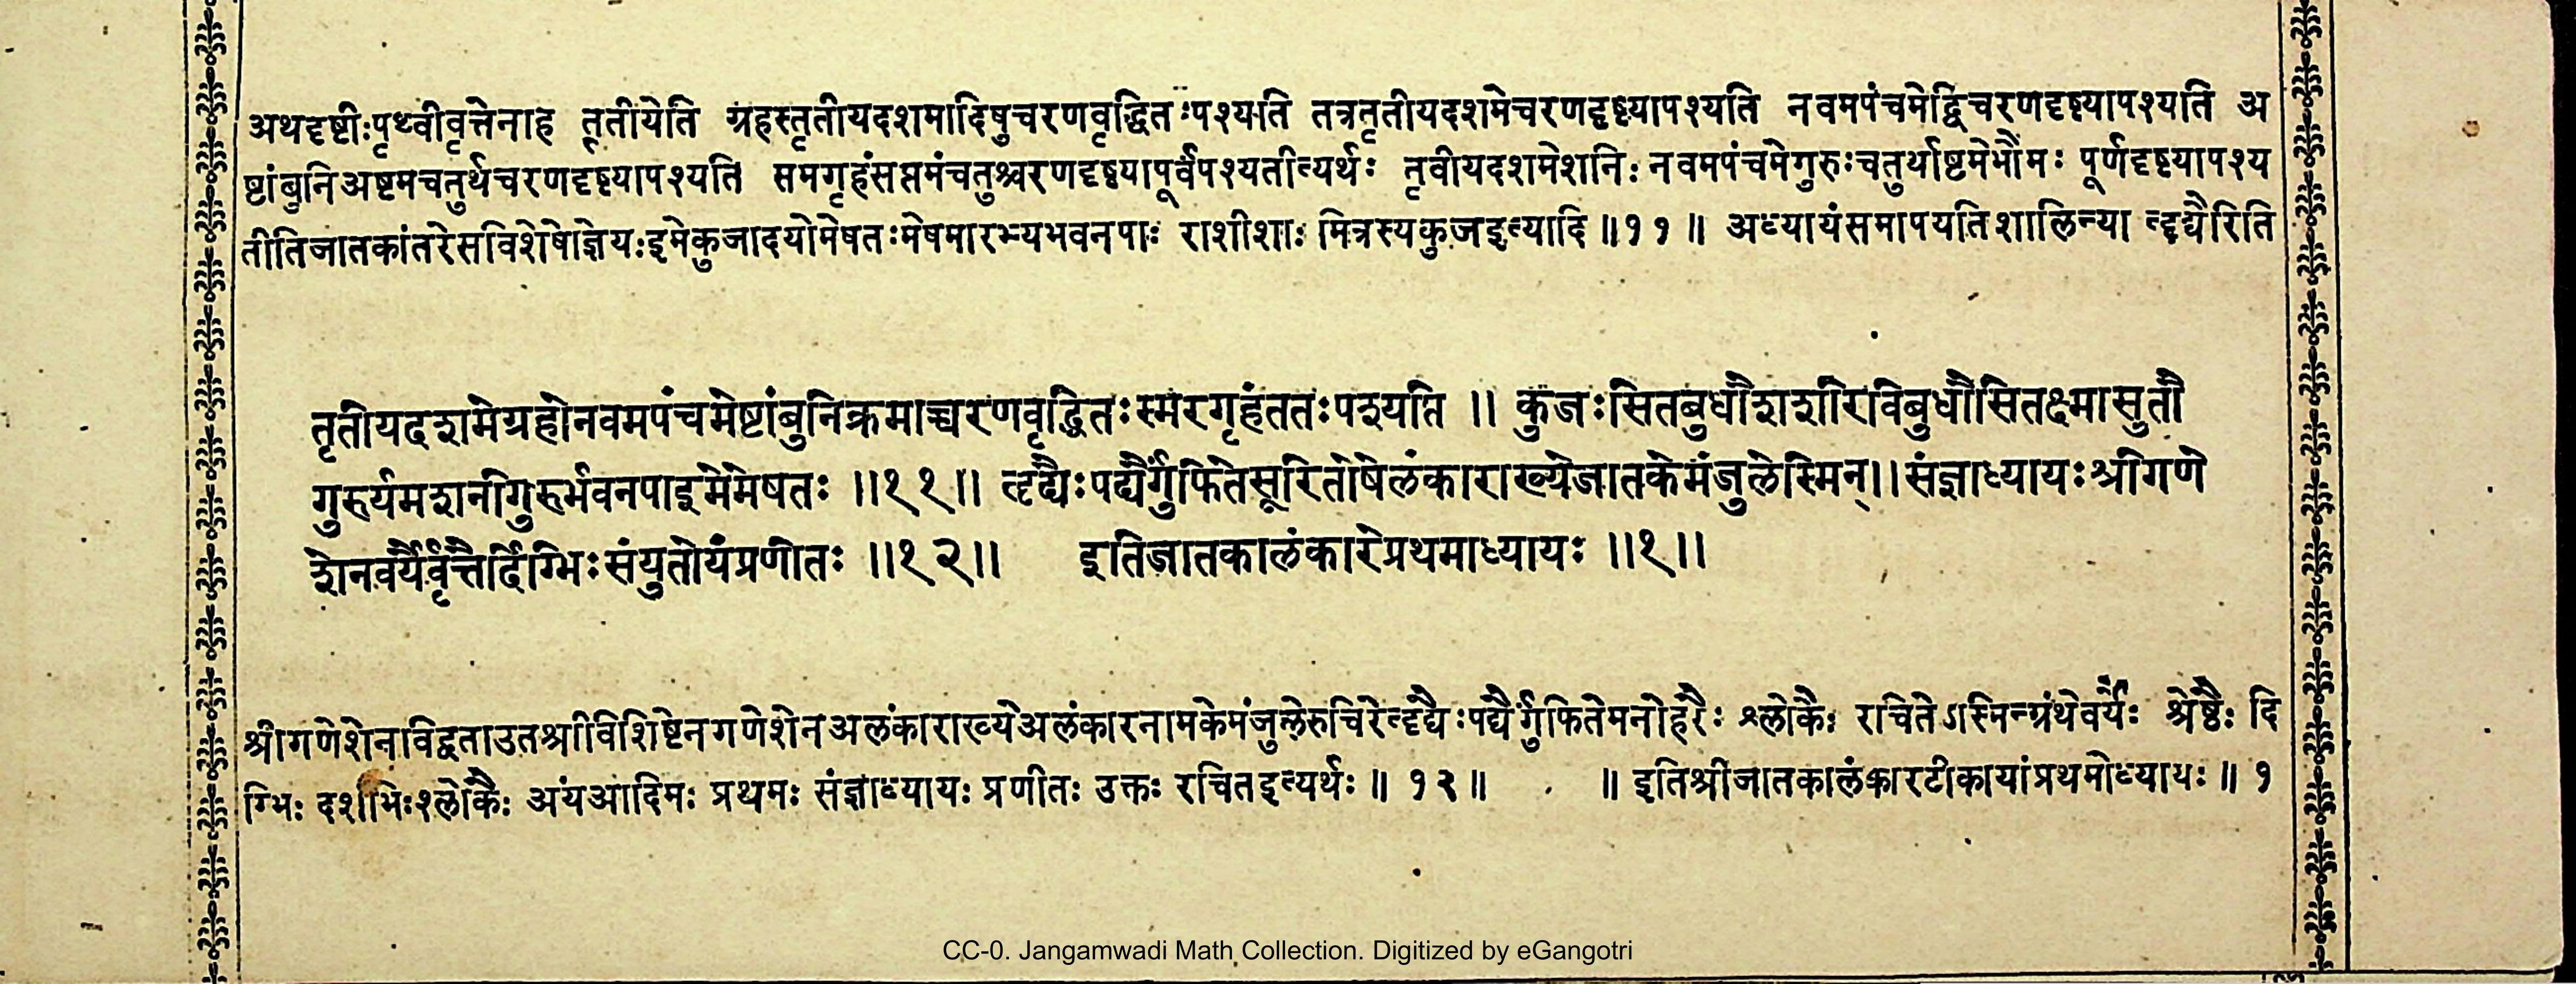 अथदृष्टीःपृथ्वीवृत्तेनाह तृतीयेति ग्रहस्तृतीयदशमादिषुचरणवृद्धितःपश्यति तत्रतृतीयदशमेचरणदृष्ट्यापश्यति नवमपंचमेद्विचरणदृष्ट्यापश्यति अ
ष्टांबुनिअष्टमचतुर्थचरणदृष्ट्यापश्यति समगृहंसप्तमंचतुश्चरणदृष्ट्यापूर्वंपश्यतीत्यर्थः तृवीयदशमेशनिः नवमपंचमेगुरुःचतुर्थाष्टमेभौमः पूर्णदृष्ट्यापश्य
तीतिजातकांतरेसविशेषोज्ञेयःइमेकुजादयोमेषतःमेषमारभ्यभवनपाः राशीशाः मित्रस्यकुजइत्यादि ॥११॥ अध्यायंसमापयतिशालिन्या त्हृद्यैरिति
तृतीयदशमेग्रहोनवमपंचमेष्टांबुनिक्रमाच्चरणवृद्धितःस्मरगृहंततःपश्यति ॥ कुजःसितबुधौशशीरविबुधौसितक्ष्मासुतौ
गुरुर्यमशनीगुरुर्भवनपाइमेमेषतः ॥११॥ त्हृद्यैःपद्यैर्गुंफितेसूरितोषेलंकाराख्येजातकेमंजुलेस्मिन्॥संज्ञाध्यायःश्रीगणे
शेनवर्यैर्वृत्तैर्दिग्भिःसंयुतोयंप्रणीतः ॥१२॥ इतिजातकालंकारेप्रथमाध्यायः ॥१॥
श्रीगणेशेनाविद्वताउतश्रीविशिष्टेनगणेशेनअलंकाराख्येअलंकारनामकेमंजुलेरुचिरेत्हृद्यैःपद्यैर्गुंफितेमनोहरैः श्लोकैः रचितेऽस्मिन्ग्रंथेवर्यैः श्रेष्ठैः दि
ग्भिः दशभिःश्लोकैः अयंआदिमः प्रथमः संज्ञाध्यायः प्रणीतः उक्तः रचितइत्यर्थः ॥ १२॥ ॥ इतिश्रीजातकालंकारटीकायांप्रथमोध्यायः ॥ १
CC-0. Jangamwadi Math Collection. Digitized by eGangotri